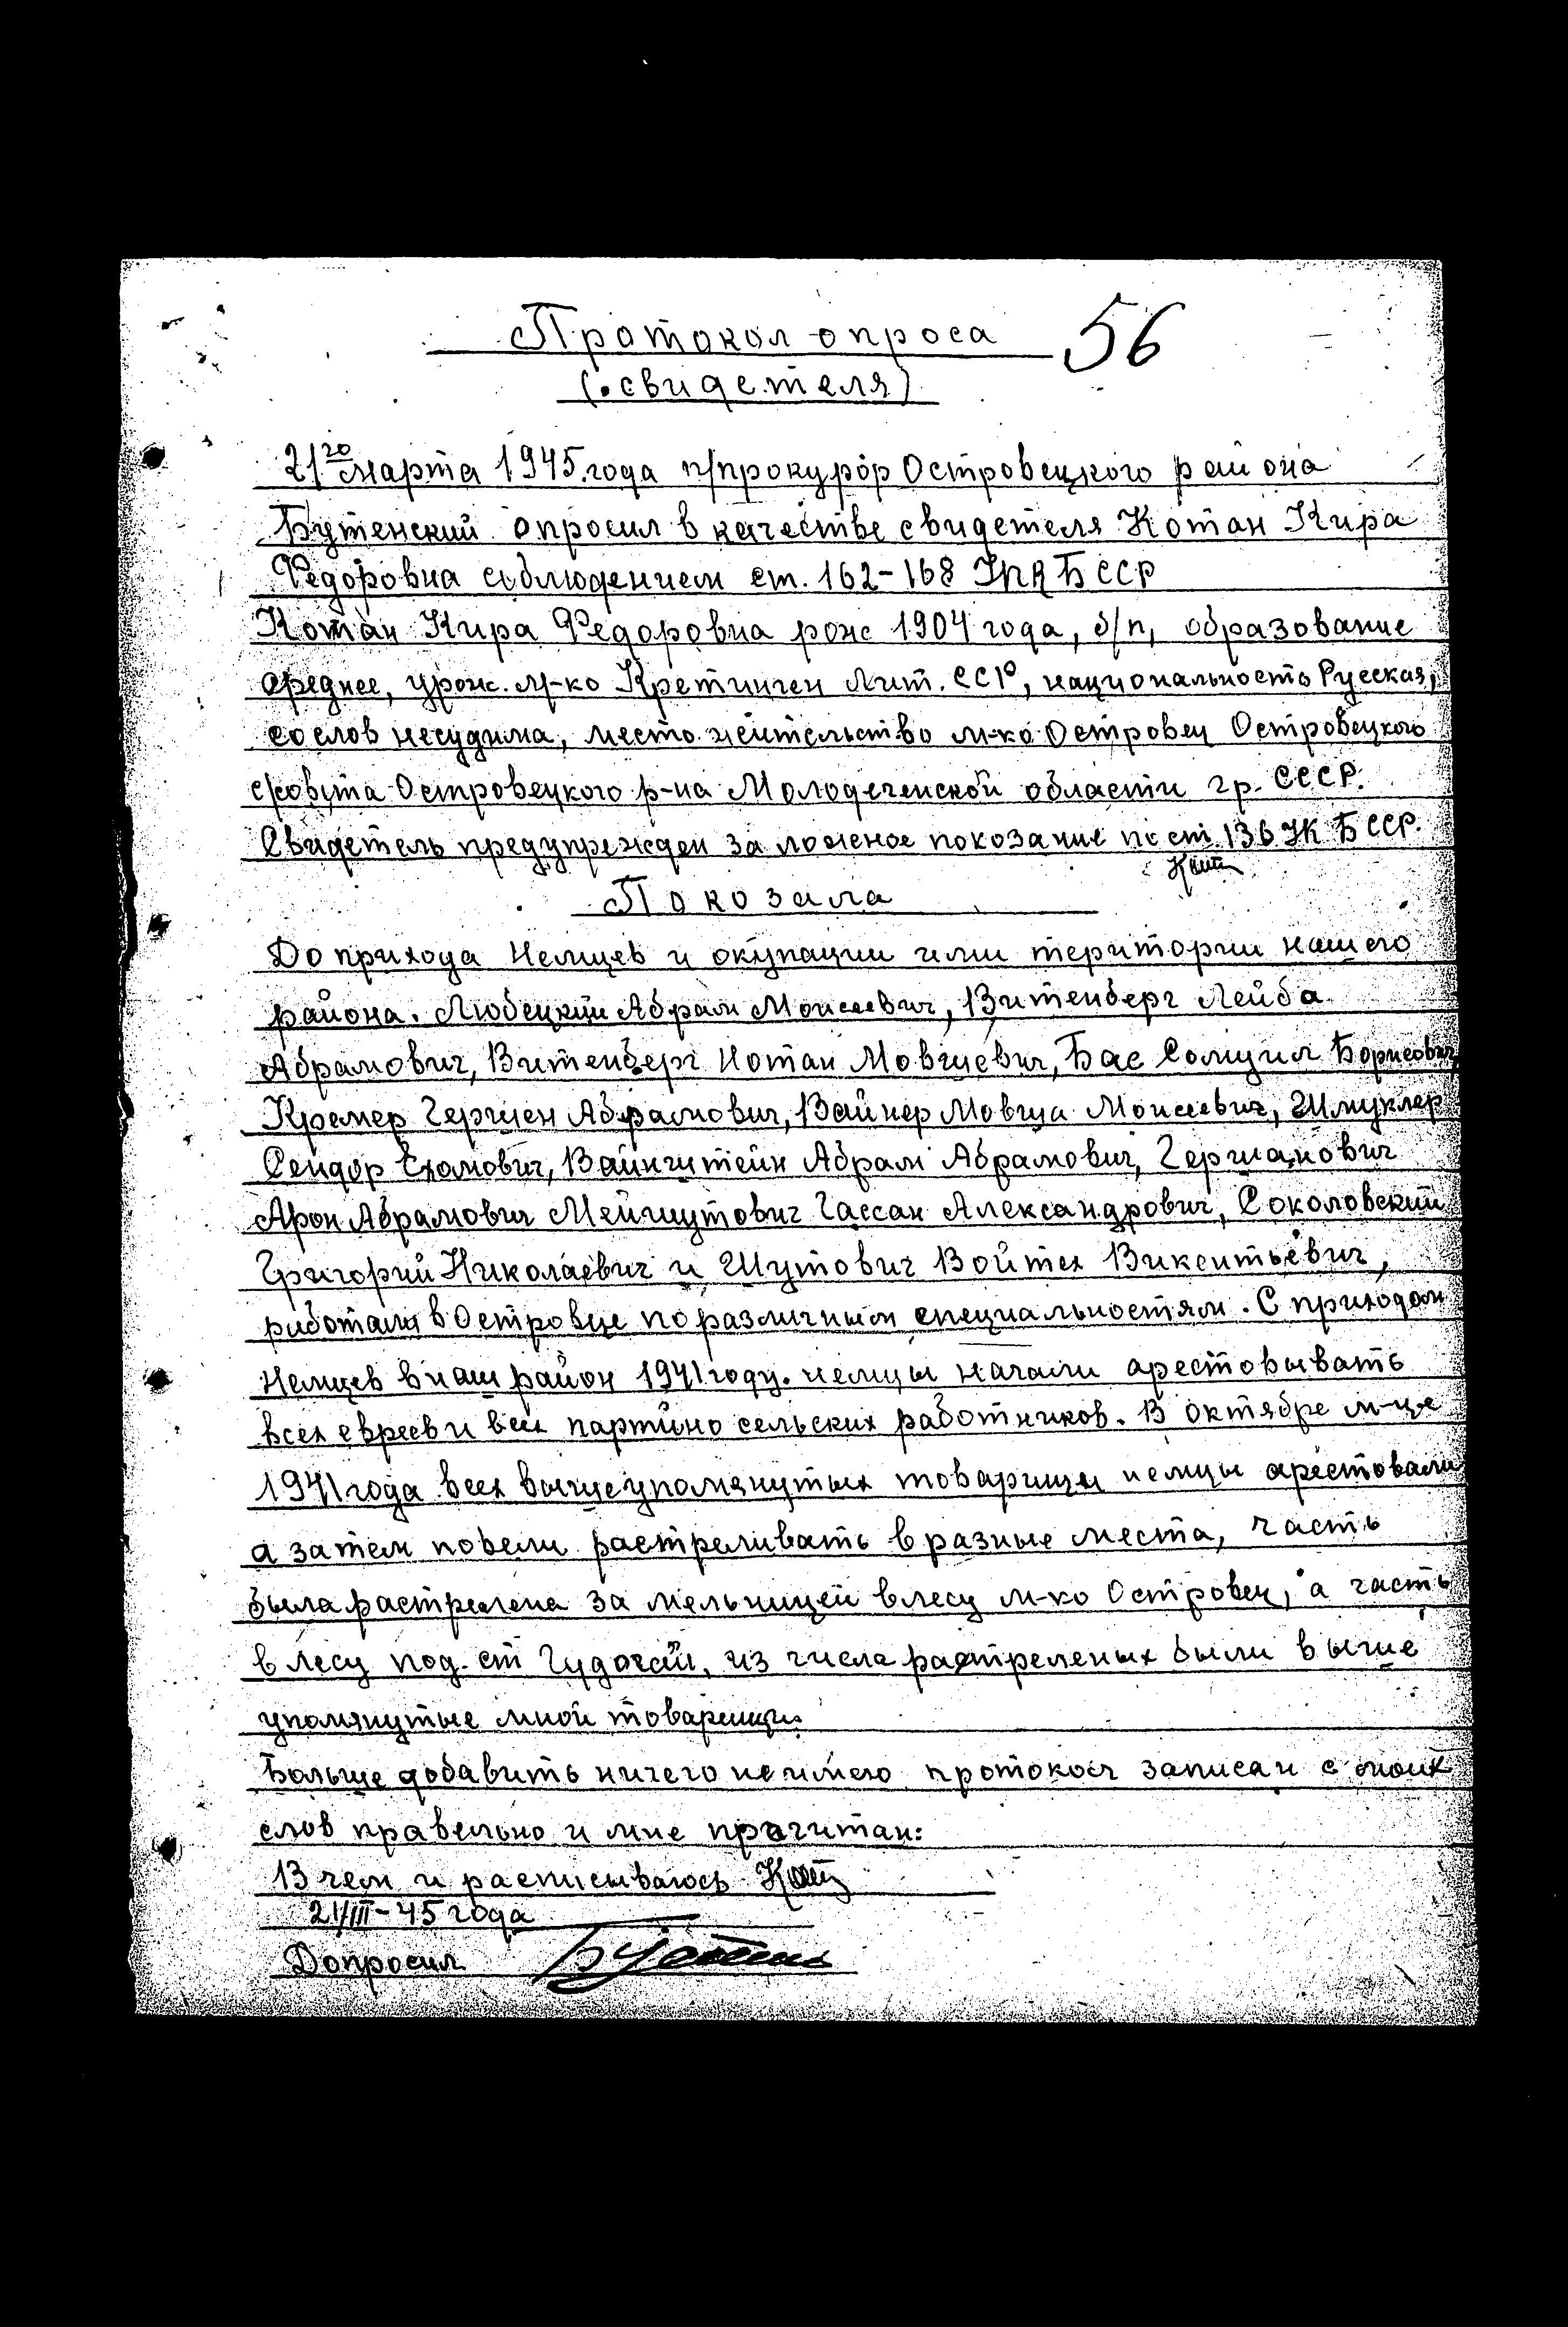 Протокол опроса 56
(свидетеля)
21го марта 1945 года п/прокурор Островецкого района
Бутенский опросил в качестве свидетеля Котан Кира
Федоровна соблюдением ст. 162-168 УПК БССР
Котан Кира Федоровна рож 1904 года, б/п, образование
среднее, урож. м-ко Кретинген Лит. ССР, национальность Русская,
со слов несудима, место жительство м-ко Островец Островецкого
с/совета Островецкого р-на Молодеченской области гр. СССР.
Свидетель предупрежден за ложное покозание по ст. 136 УК БССР.
Покозала
До прихода Немцев и окупации ими територии нашего
района. Любецкий Абрам Моисеевич, Витенберг Лейба
Абрамович, Витенберг Нотан Мовшевич, Бас Самуил Борисович,
Кремер Гершен Абрамович, Вайнер Мовша Моисеевич, Шмуклер
Сендор Ехомович, Вайнштейн Абрам Абрамович, Германович
Арон Абрамович Мейшутович Гассан Александрович, Соколовский
Григорий Николаевич и Шутович Войтех Викентьевич,
работали в Островце по различным специальностям. С приходом
Немцев в наш район 1941 году. немцы начали арестовывать
всех евреев и всех партийно сельских работников. В октябре м-це
1941 года всех вышеупомянутых товарищи немцы арестовали
а затем повели растреливать в разные места, часть
была растрелена за мельницей в лесу м-ко Островец, а часть
в лесу под. ст Гудогай, из числа растреленых были выше
упомянутые мной товарищи.
Больше добавить ничего не имею протокол записан с моих
слов правельно и мне прочитан:
В чем и расписываюсь
21/III-45 года
Допросил